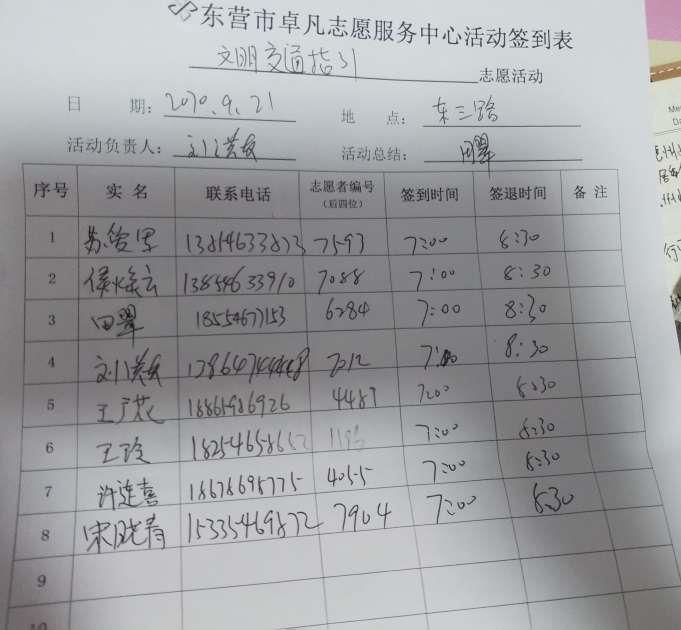 东营市卓凡志愿服务中心活动签到表
文明交通指引 志愿活动
日 期: 2020.9.21 地 点: 东三路
活动负责人: 活动总结: 田翠
序号 实名 联系电话 志愿者编号 (后四位) 签到时间 签退时间 备注
1 7593 7:00 8:30
2 7088 7:00 8:30
3 田翠 18554677153 6284 7:00 8:30
4 7:00 8:30
5 王广花 18861986926 4487 7:00 8:30
6 王玲 7:00 8:30
7 许连喜 18678698775 4055 7:00 8:30
8 宋晓青 15335469872 7904 7:00 8:30
9
10